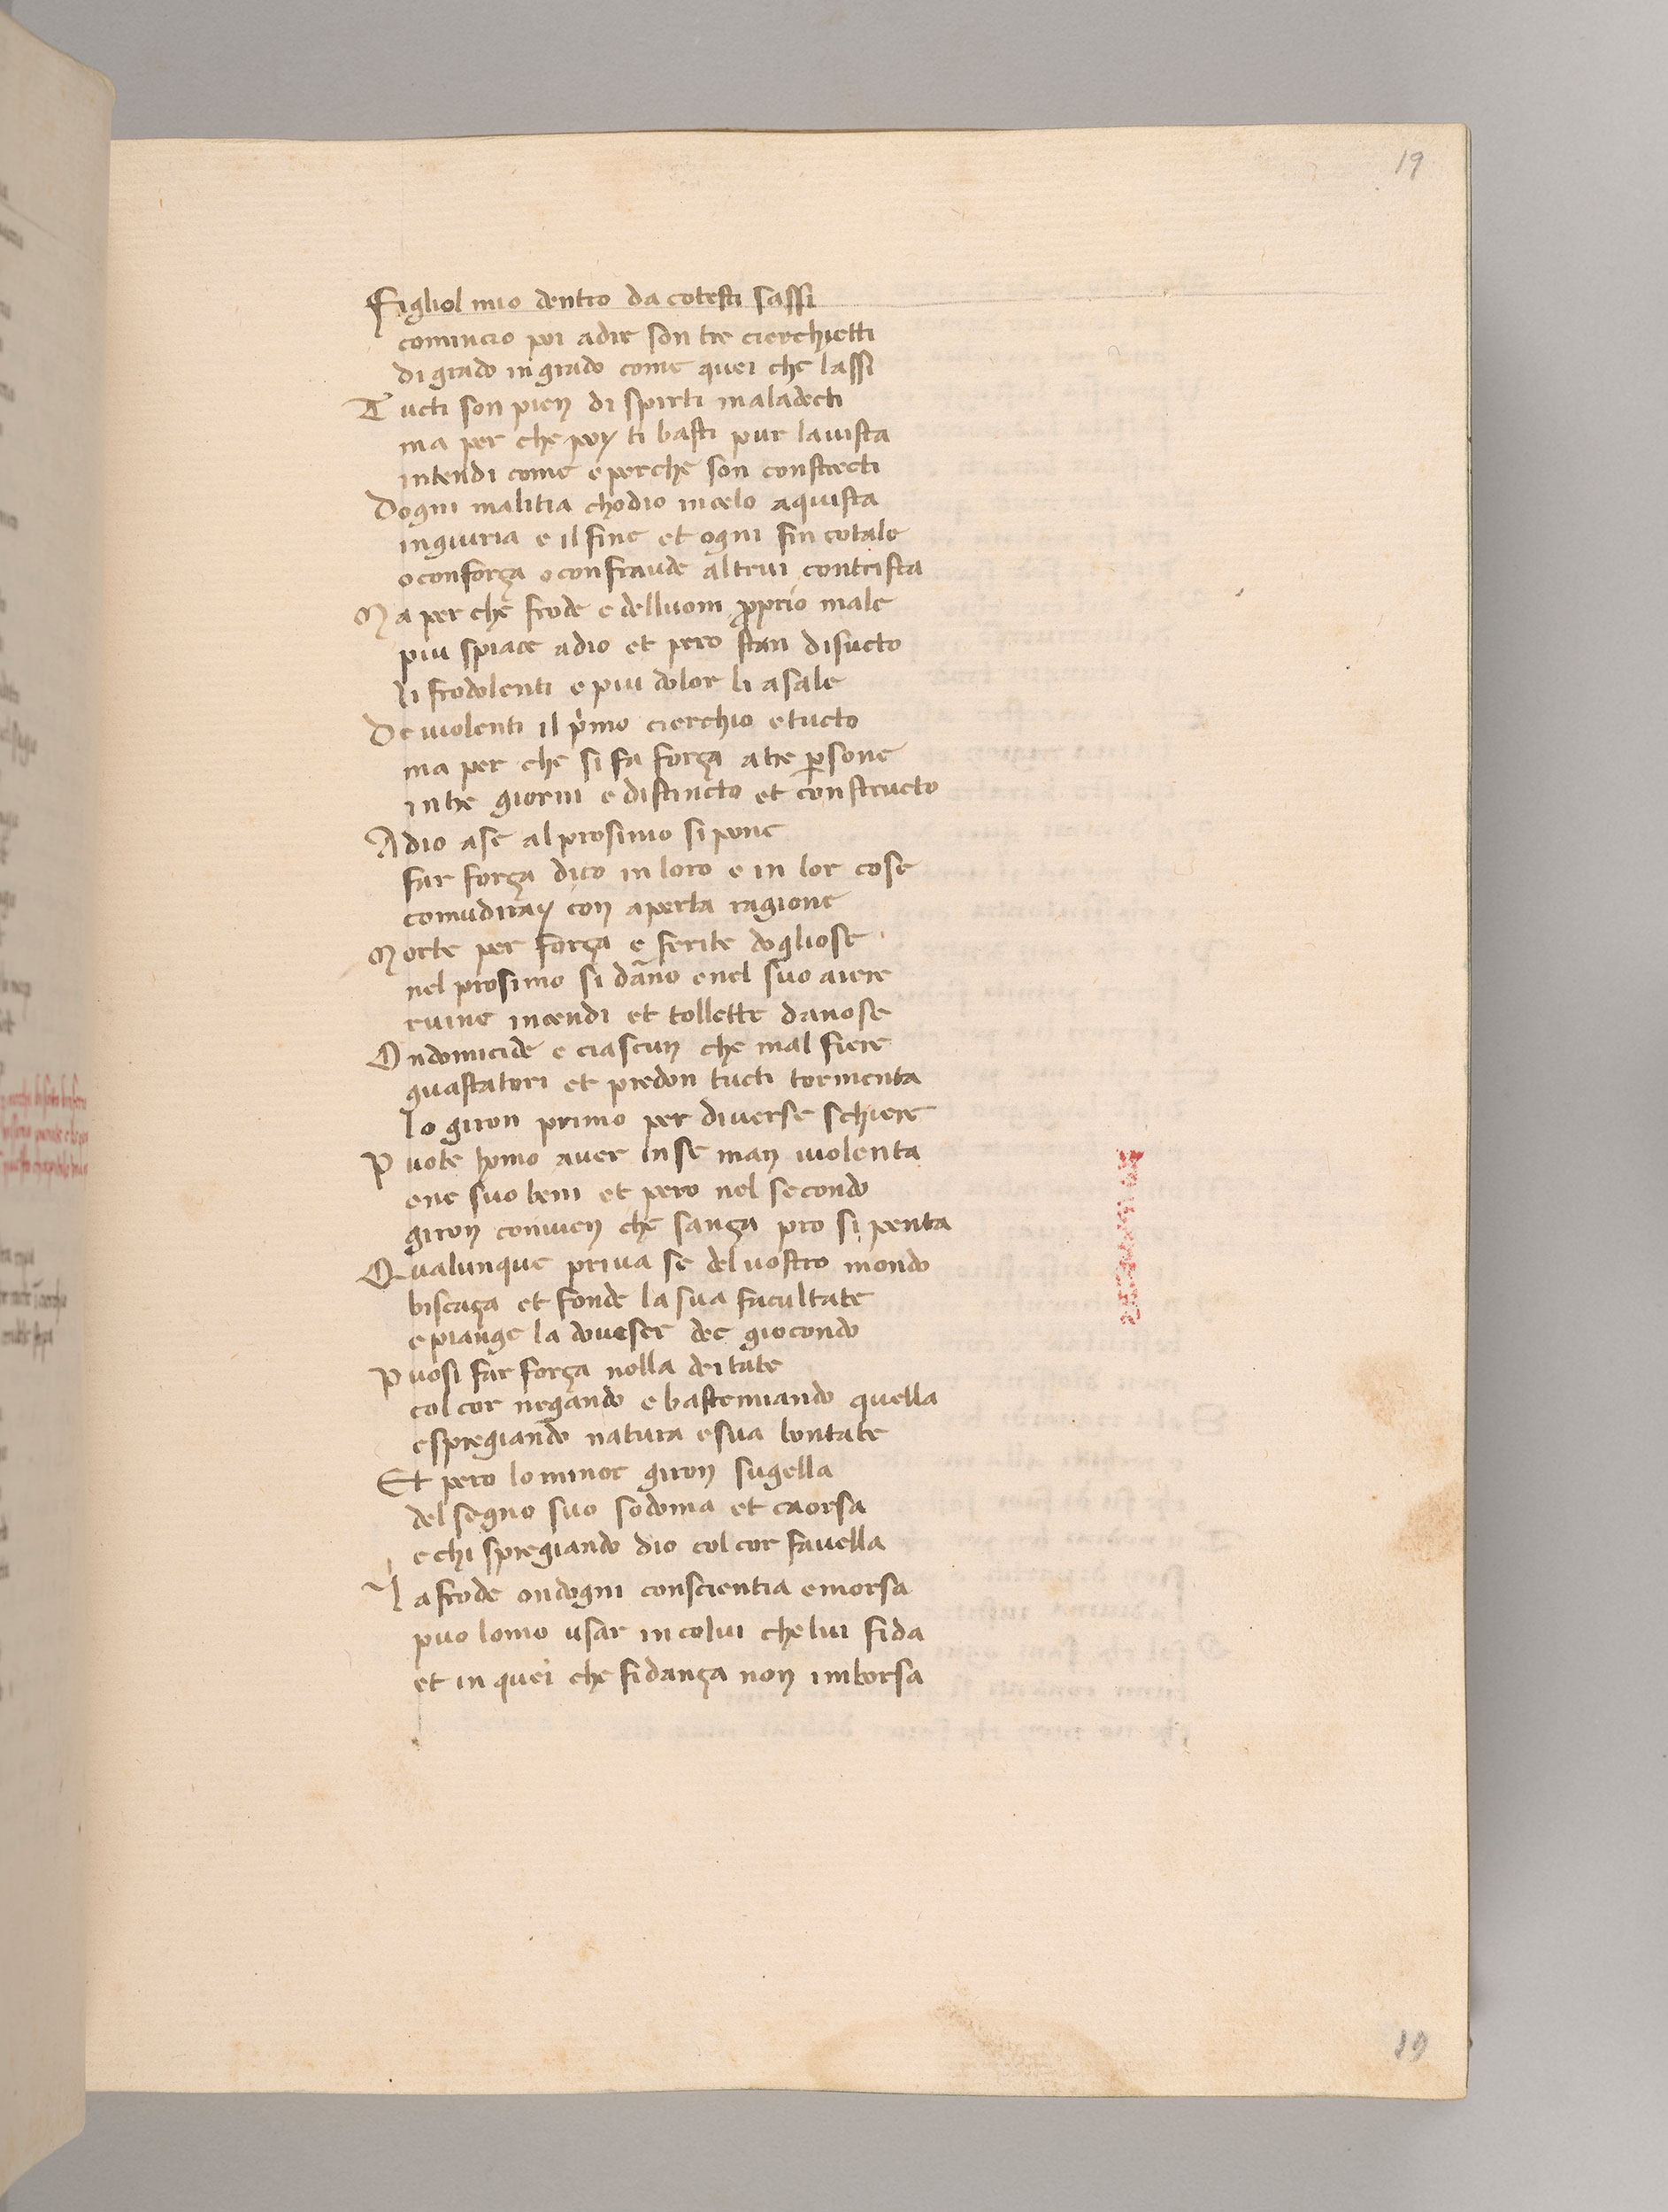 19
Figliol mio dentro da cotesti sassi
comincio poi adir son tre cierchietti
di grado in grado come quei che lassi
Tucti son pien di spirti maladecti
ma per che poy ti basti pur lauista
intendi come e perche son constrecti
Dogni malitia chodio incelo aquista
ingiuria e il fine et ogni fin cotale
o conforça o con fraude altrui contrista
Ma per che frode e delluom proprio male
piu spiace adio et pero stan disucto
li frodolenti e piu dolor li asale
De uiolenti il primo cierchio e tucto
ma per che si fa força atre persone
intre giorni e distincto et constructo
Adio ase al prosimo si pone
far força dico in loro e in lor cose
comudiray con aperta ragione
Morte per força e ferite dogliose
nel prosimo si dãno e nel suo auere
ruine incendi et tollette danose
Ondomicide e ciascun che mal fiere
guastatori et predon tucti tormenta
lo giron primo per diuerse schiere
Puote homo auer in se man uiolenta
e ne suo beni et pero nel secondo
giron conuien che sança pro si penta
Qualunque priua se del uostro mondo
biscaça et fonde la sua facultate
e piange la doueser dee giocondo
Puosi far força nella deitate
col cor negando e bastemiando quella
e spregiando natura e sua bontate
Et pero lo minor giron sugella
del segno suo sodoma et caorsa
e chi spregiando dio col cor fauella
La frode ondogni conscientia e morsa
puo lomo usar in colui che lui fida
et in quei che fidança non imborsa
19